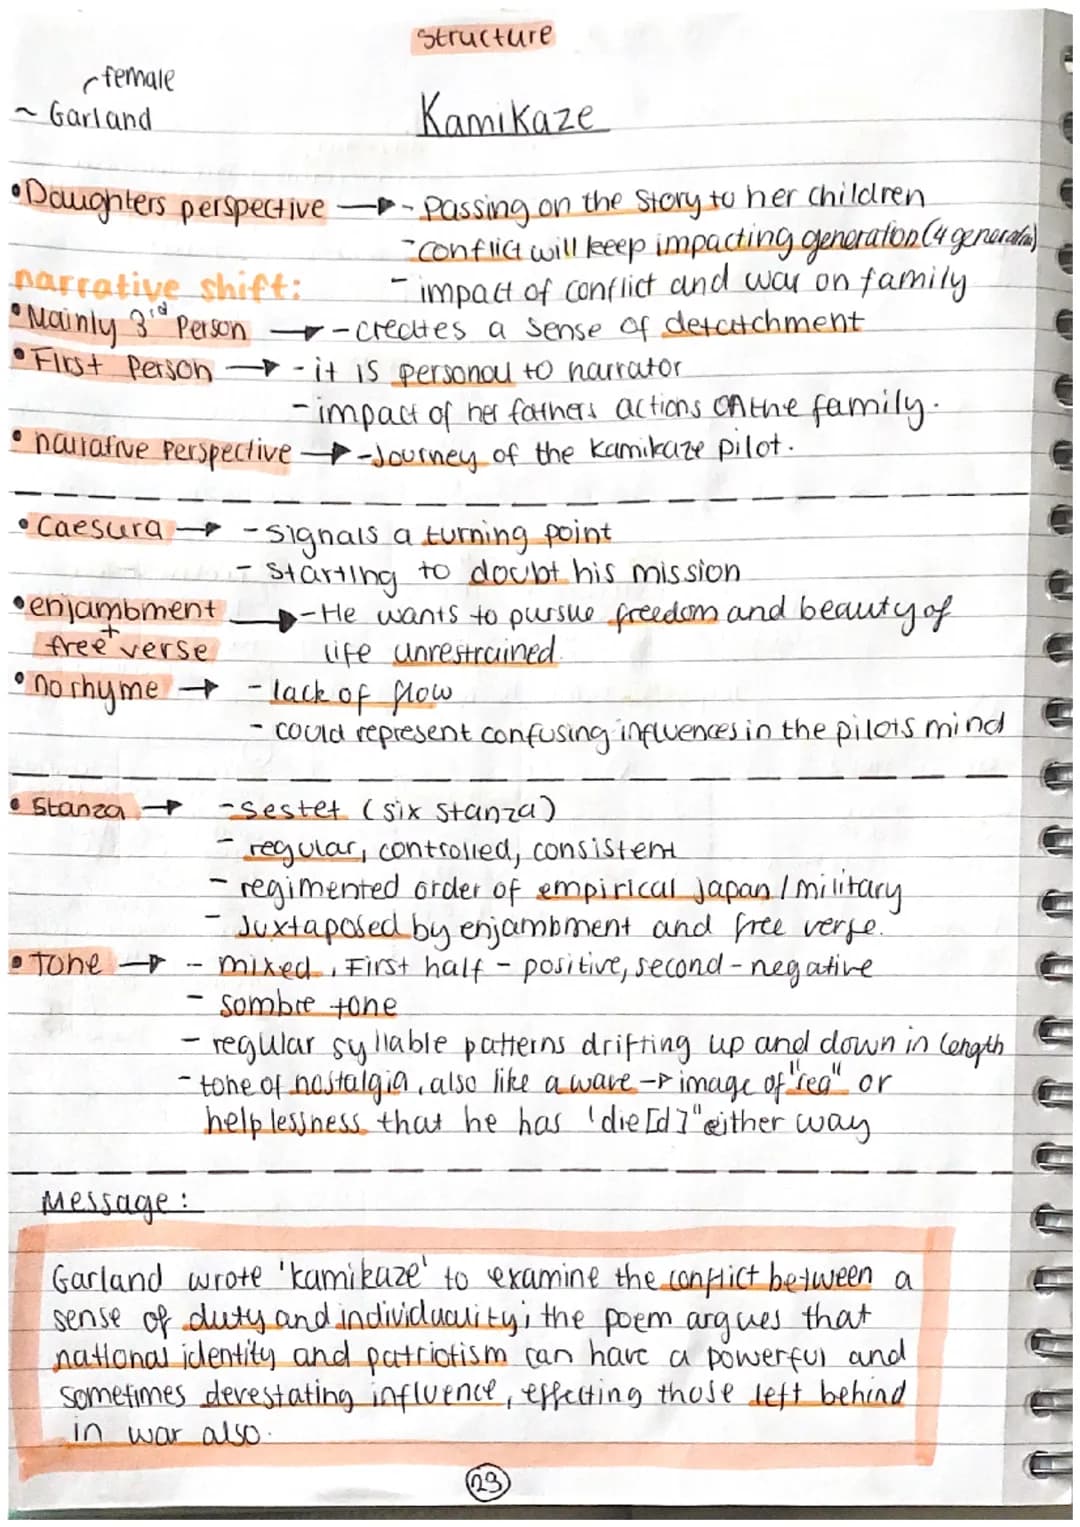 Structure
female
~ Garland
Kamikaze
• Daughters perspective → - Passing on the story to her children
- conflict will keep impacting generation (4 generation)
- impact of conflict and war on family
narrative shift:
• Mainly 3rd Person → - creates a sense of detatchment
• First Person → - it is personal to narrator
- impact of her fathers actions on the family.
• narrative perspective → - Journey of the Kamikaze pilot.
• Caesura → - signals a turning point
- starting to doubt his mission
• enjambment → - He wants to pursue freedom and beauty of
+
free verse life unrestrained.
• no rhyme → - lack of flow
- could represent confusing influences in the pilots mind
• Stanza → - sestet (six stanza)
- regular, controlled, consistent
- regimented order of empirical Japan / military
- Juxtaposed by enjambment and free verse.
• Tone → - mixed, First half - positive, second - negative
- sombre tone
- regular syllable patterns drifting up and down in length
- tone of nostalgia, also like a wave → image of "sea" or
helplessness that he has 'die[d]" either way
Message:
Garland wrote 'kamikaze' to examine the conflict between a
sense of duty and individuality; the poem argues that
national identity and patriotism can have a powerful and
sometimes devestating influence, effecting those left behind
in war also.
29